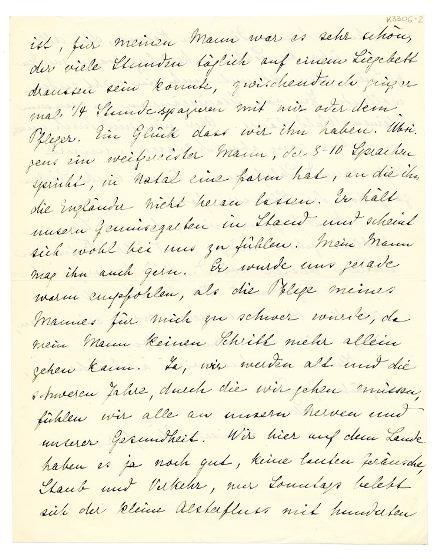 K3306-2
ist, für meinen Mann war es sehr schön,
der viele Stunden täglich auf einem Liegebett
draussen sein konnte, zwischendurch gingen
mal ¼ Stunde spazieren mit mir oder dem
Pfleger. Ein Glück dass wir ihn haben. Übri-
gens ein weitgereister Mann, der 8-10 Sprachen
spricht, in Natal eine Farm hat, an die ihn
die Engländer nicht heran lassen. Er hält
unsern Gemüsegarten in Stand und scheint
sich wohl bei uns zu fühlen. Mein Mann
mag ihn auch gern. Er wurde uns gerade
warm empfohlen, als die Pflege meines
Mannes für mich zu schwer wurde, da
mein Mann keinen Schritt mehr allein
gehen kann. Ja, wir werden alt und die
schweren Jahre, durch die wir gehen müssen,
fühlen wir alle an unsern Nerven und
unserer Gesundheit. Wir hier auf dem Lande
haben es ja noch gut, keine lauten Geräusche,
Staub und Verkehr, nur Sonntags belebt
sich der kleine Alsterfluss mit hunderten